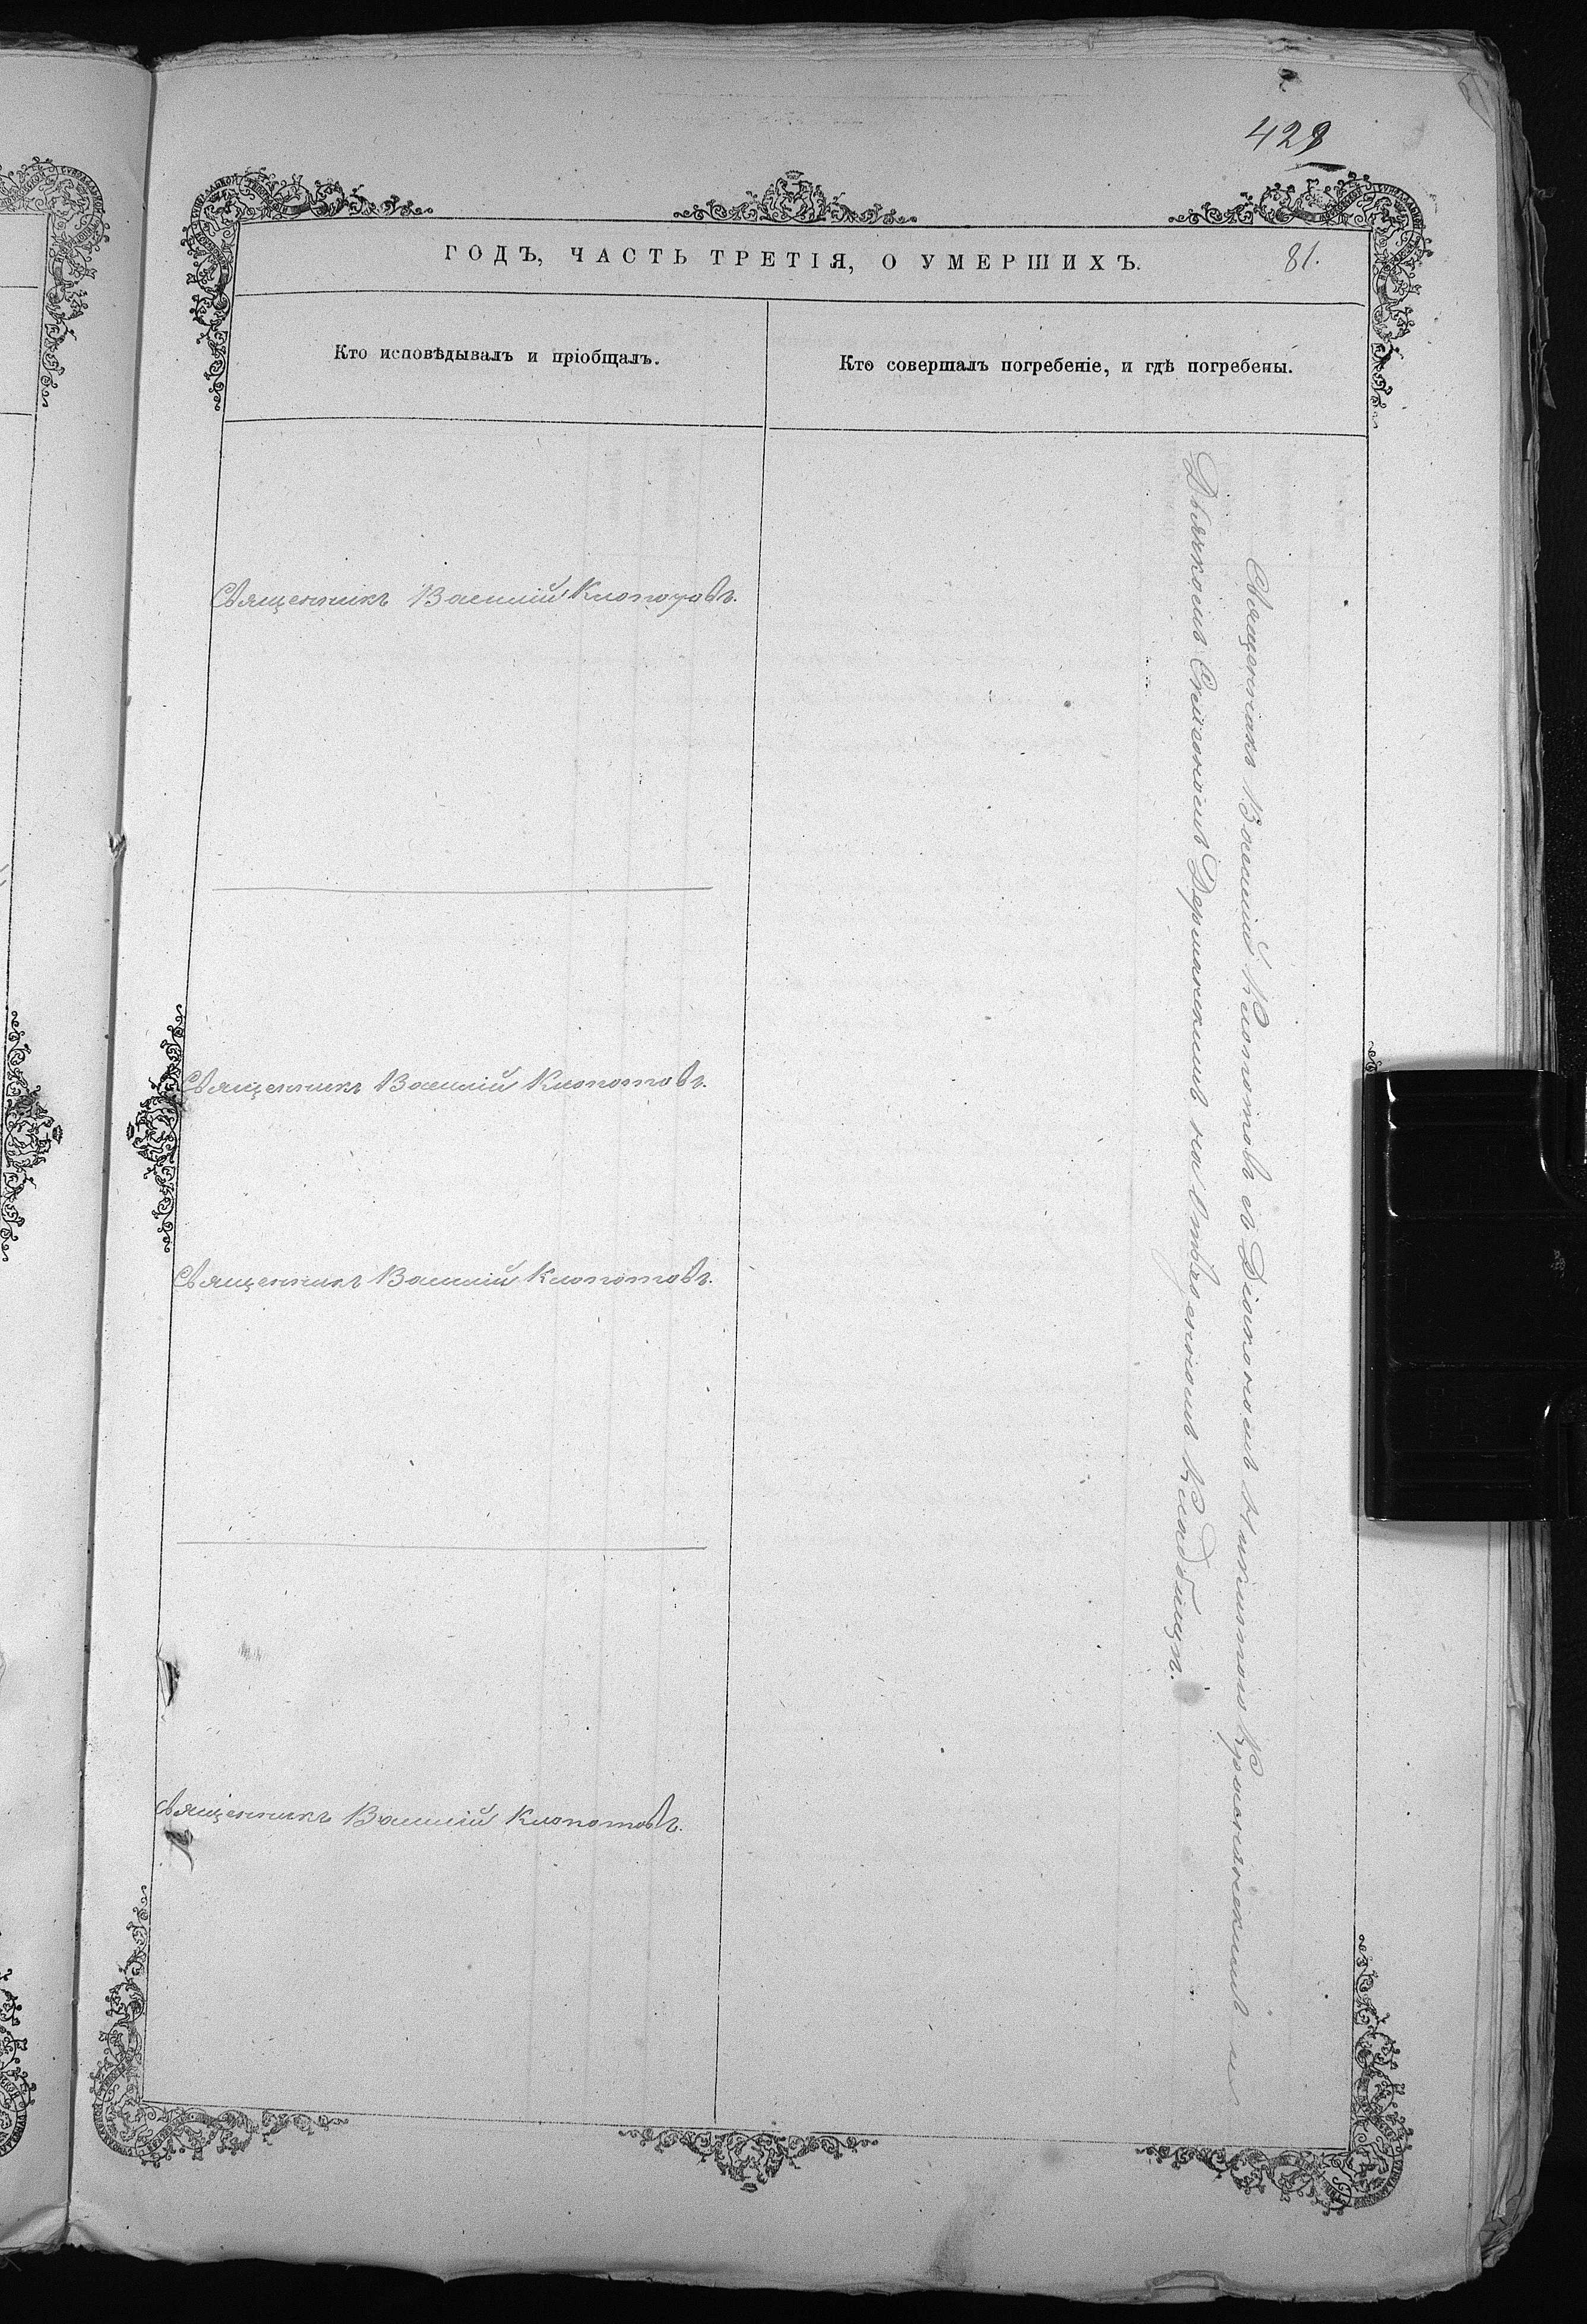 428
ГОДЪ, ЧАСТЬ ТРЕТІЯ, О УМЕРШИХЪ.
81.
Кто исповѣдывалъ и пріобщалъ.
Кто совершалъ погребеніе, и гдѣ погребены.
Священникъ Василій Клопотовъ.
Священникъ Василій Клопотовъ.
Священникъ Василій Клопотовъ.
Священникъ Василій Клопотовъ.
Священникъ Василій Клопотовъ съ Діакономъ Никитою и
Дьячкомъ Симеономъ Держанскимъ на Отведенномъ Кладбищѣ.